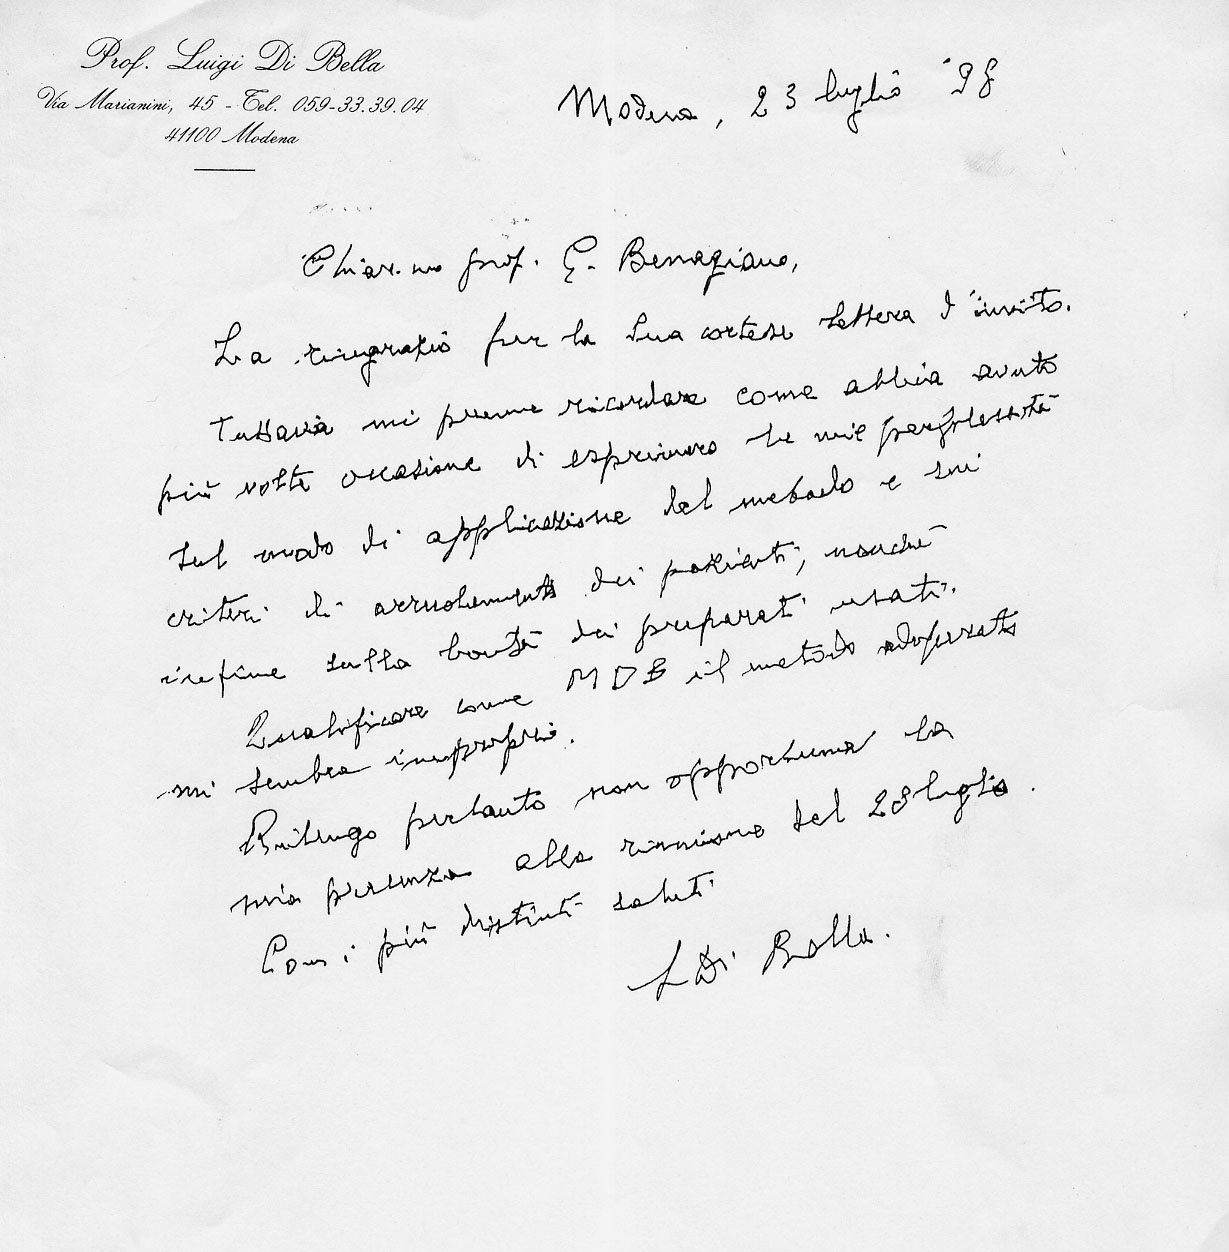 Prof. Luigi Di Bella
Via Marianini, 45 - Tel. 059-33.39.04
41100 Modena
Modena, 23 luglio '98
Chiar.mo prof. G. Benagiano,
La ringrazio per la Sua cortese lettera d'invito.
Tuttavia mi preme ricordare come abbia avuto
più volte occasione di esprimere le mie perplessità
sul modo di applicazione del metodo e sui
criteri di arruolamento dei pazienti, nonché
infine sulla bontà dei preparati usati.
Qualificare come MDB il metodo adoperato
mi sembra improprio.
Ritengo pertanto non opportuna la
mia presenza alla riunione del 28 luglio.
Con i più distinti saluti
L Di Bella.